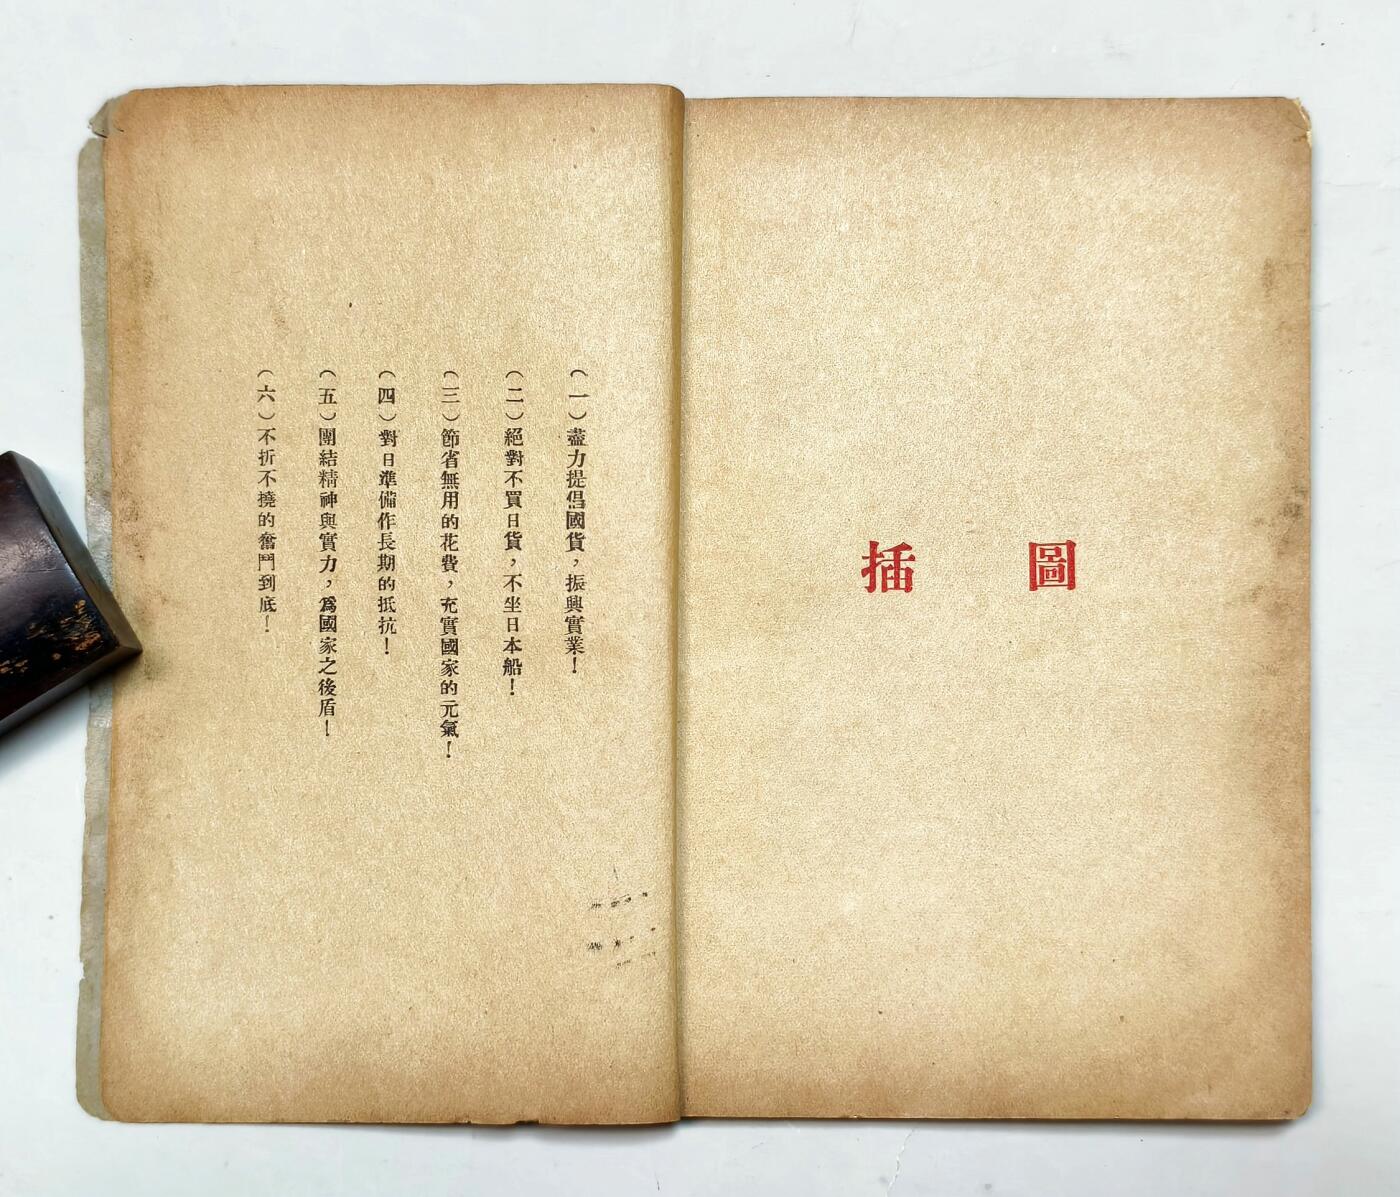 （一）盡力提倡國貨，振興實業！
（二）絕對不買日貨，不坐日本船！
（三）節省無用的花費，充實國家的元氣！
（四）對日準備作長期的抵抗！
（五）團結精神與實力，爲國家之後盾！
（六）不折不撓的奮鬥到底！
插圖